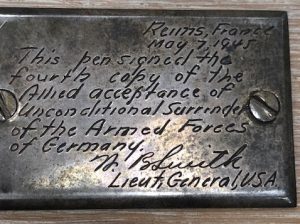 Reims, France
May 7, 1945
This pen signed the
fourth copy of the
Allied acceptance of
Unconditional Surrender
of the Armed Forces
of Germany.
W B Smith
Lieut. General, U.S.A